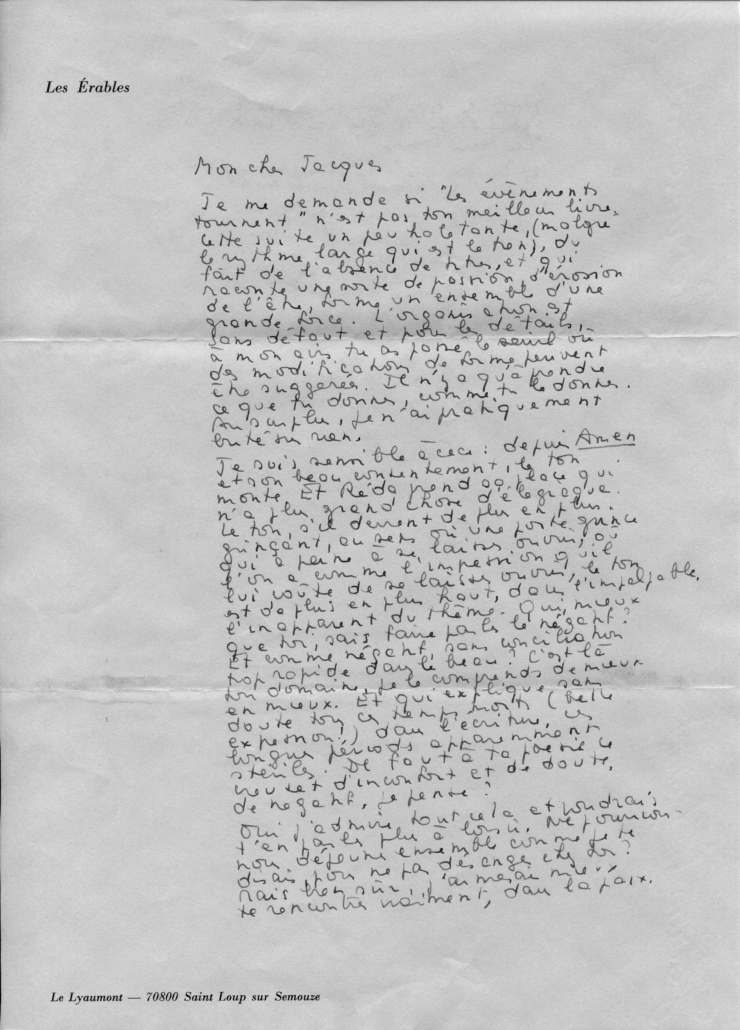 Les Érables
Mon cher Jacques
Je me demande si "les évènements
tournent" n'est pas ton meilleur livre.
Cette suite un peu haletante, (malgré
le rythme large qui est le tien), du
fait de l'absence de titres, et qui
raconte une sorte de passion, d'érosion
de l'être, forme un ensemble d'une
grande force. L'organisation est
sans défaut et pour les détails,
à mon avis, tu as passé le seuil où
des modifications de forme peuvent
être suggérées. Il n'y a qu'à prendre
ce que tu donnes, comme tu le donnes.
Au surplus, je n'ai pratiquement
buté sur rien.
Je suis sensible à ceci : depuis Amen
et son beau consentement, le ton
monte. Et Réda prend sa place qui
n'a plus grand chose d'élégiaque.
Le ton, s'il devient de plus en plus
grinçant, au sens où une porte grince
qui a peine à se laisser ouvrir, où
l'on a comme l'impression qu'il
lui coûte de se laisser ouvrir, le ton
est de plus en plus haut, dans l'impalpable,
l'inapparent du thème. Qui, mieux
que toi, sais faire parler le négant?
Et comme négant, sans conciliation
trop rapide dans le beau? C'est là
ton domaine, je le comprends de mieux
en mieux. Et qui explique sans
doute tous ces temps morts (belle
expression!) dans l'écriture, ces
longues périodes apparemment
stériles. Il faut à ta poésie ce
creuset d'inconfort et de doute,
de négant, je pense?
Oui j'admire tout cela et voudrais
t'en parler plus à loisir. Ne pourrions-
nous déjeuner ensemble comme je te
disais, pour ne pas déranger chez toi?
Mais bien sûr, j'aimerais mieux
te rencontrer vraiment, dans la paix.
Le Lyaumont — 70800 Saint Loup sur Semouze